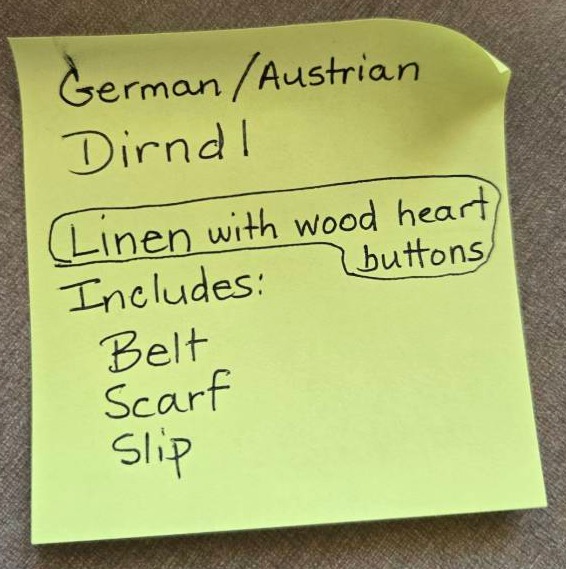 German/Austrian
Dirndl
Linen with wood heart
buttons
Includes:
Belt
Scarf
Slip